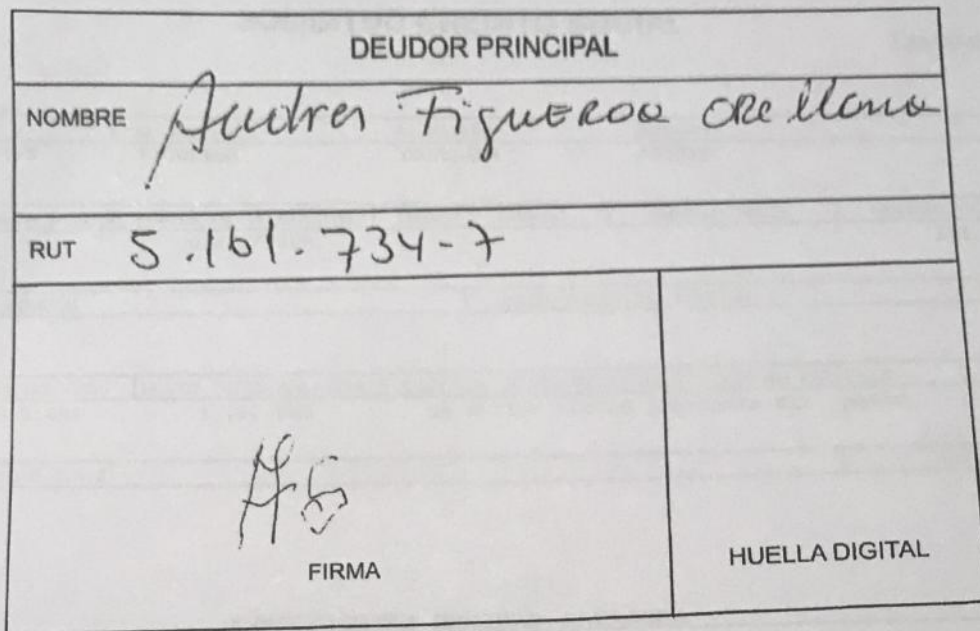 DEUDOR PRINCIPAL
NOMBRE Andrea Figueroa Orellana
RUT 5.161.734-7
FIRMA
HUELLA DIGITAL